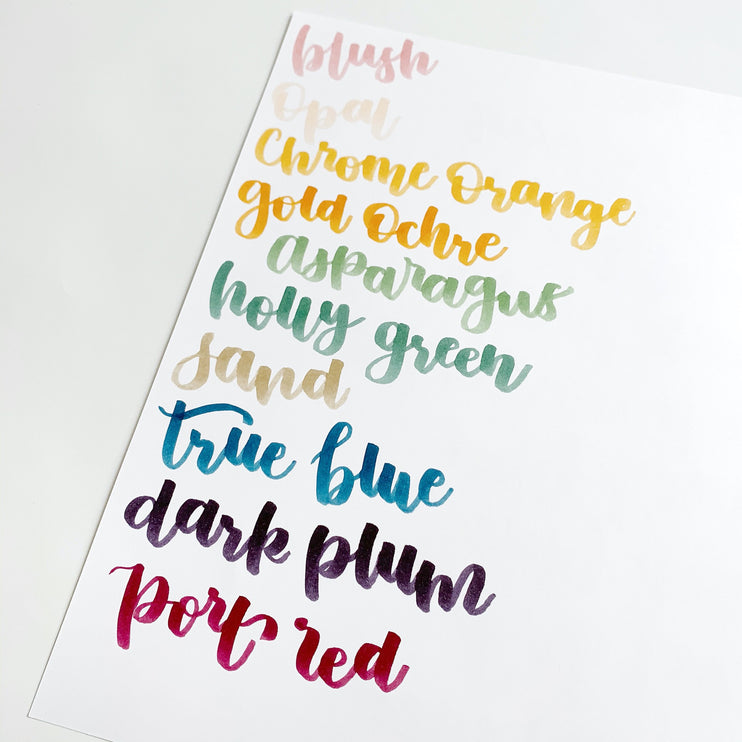 blush
Opal
Chrome Orange
gold Ochre
asparagus
holly green
sand
true blue
dark plum
port red